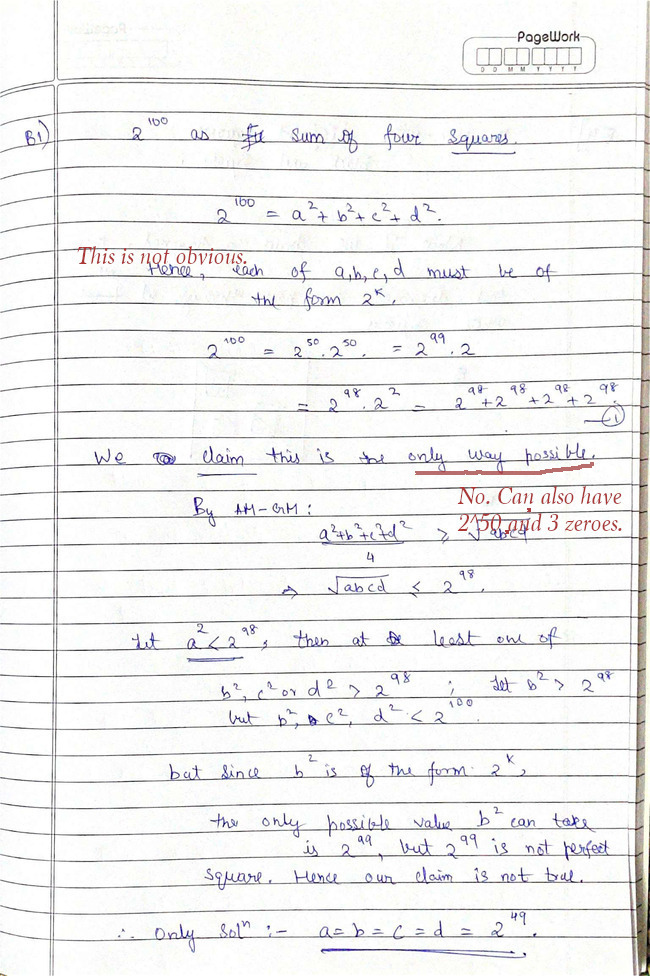 PageWork
D D M M Y Y Y Y
B1) 2^100 as sum of four squares.
2^100 = a² + b² + c² + d².
This is not obvious.
Hence, each of a,b,c,d must be of
the form 2^k.
2^100 = 2^50 . 2^50 . = 2^99 . 2
= 2^98 . 2² = 2^98 + 2^98 + 2^98 + 2^98.
—①
We claim this is the only way possible.
No. Can also have
2^50 and 3 zeroes.
By AM-GM:
a²+b²+c²+d² / 4 ≥ √abcd
⇒ √abcd ≤ 2^98.
Let a² < 2^98, then at least one of
b², c² or d² > 2^98 ; Let b² > 2^98
but b², c², d² < 2^100.
but since b² is of the form 2^k,
the only possible value b² can take
is 2^99, but 2^99 is not perfect
square. Hence our claim is not true.
∴ Only Solⁿ :- a = b = c = d = 2^49.